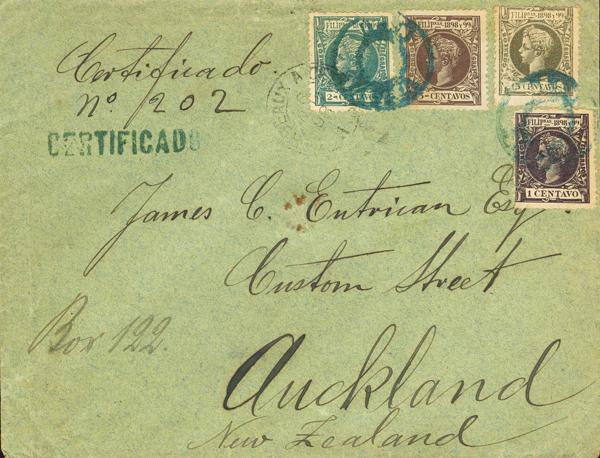 Certificado.
nº 202
CERTIFICADO
FILIPNAS. 1898 Y 99
FILIPNAS. 1898 Y 99
5-CENTAVOS
FILIPNAS. 1898 Y 99
FILIPNAS. 1898 Y 99
1 CENTAVO
James C. Entrican Esq
Custom Street
Box 122.
Auckland
New Zealand